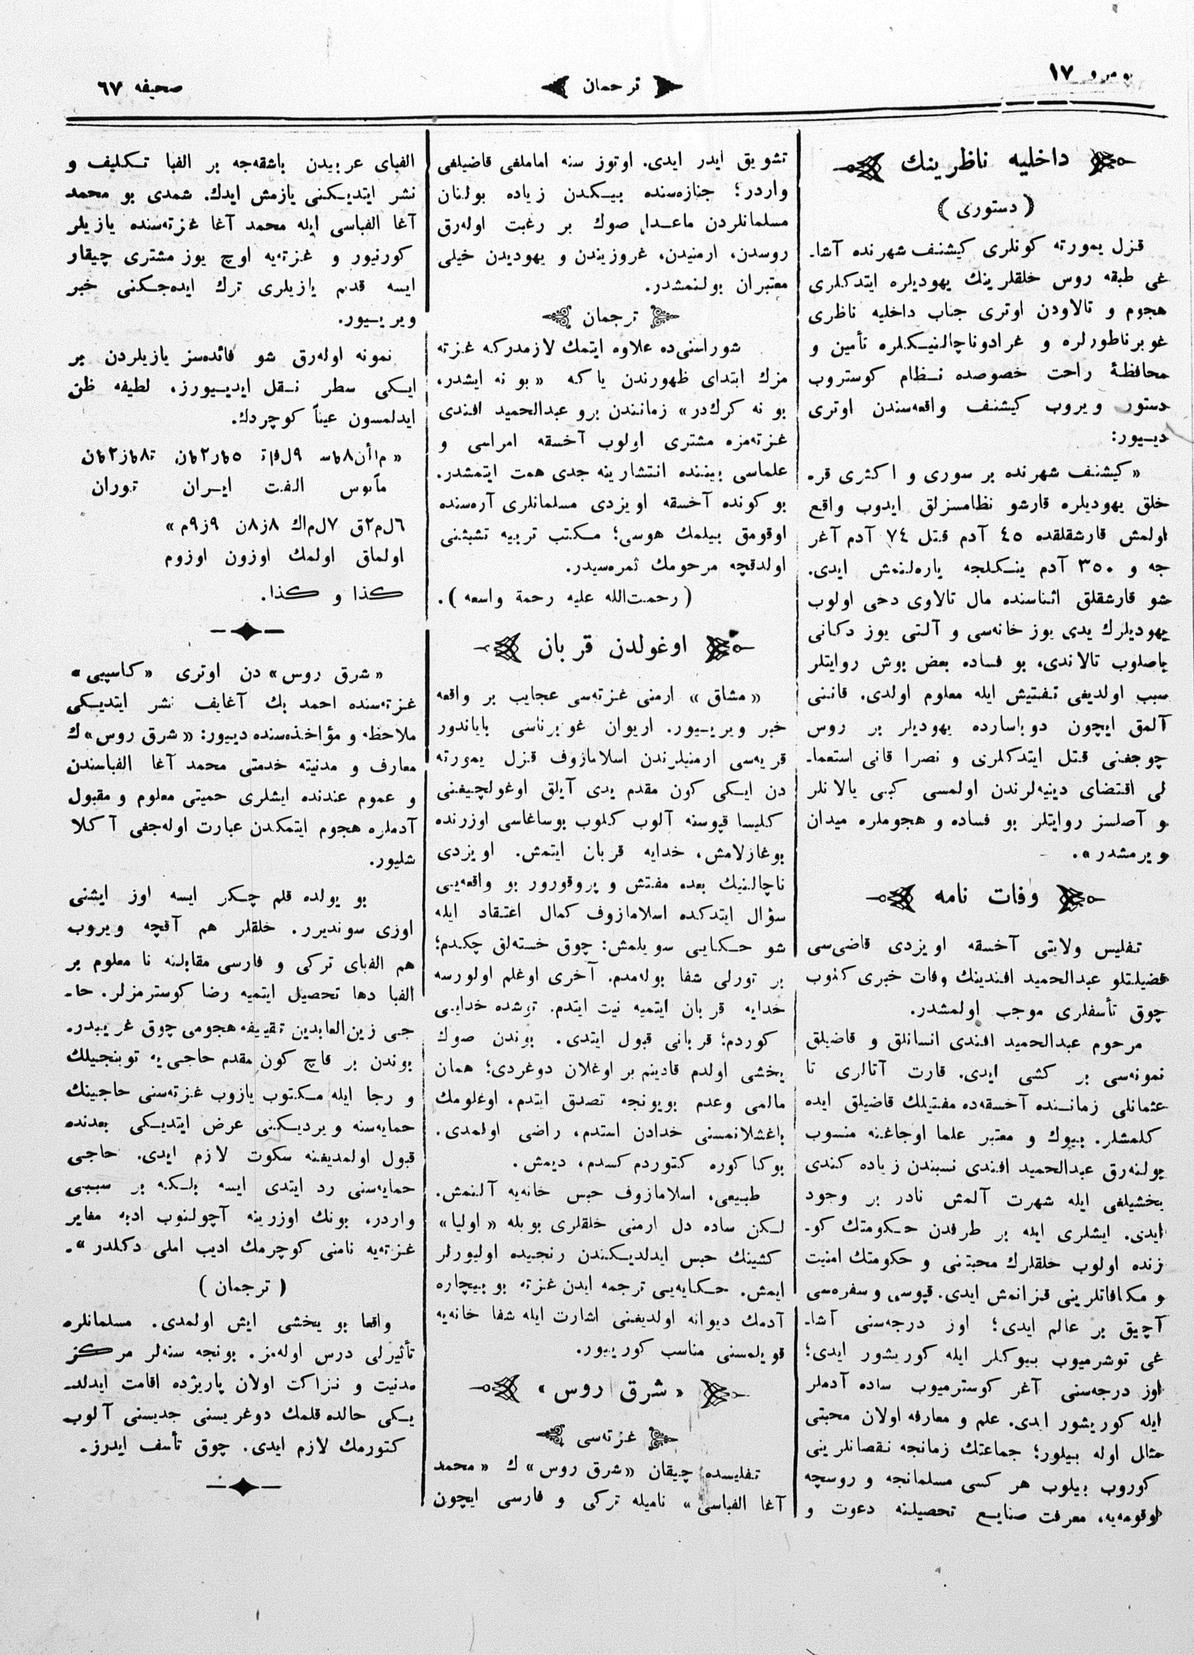 نومرو ١٧
ترجمان
صحيفه ٦٧
داخليه ناظرينك
( دستورى )
قزل يمورته كونلرى كيشنف شهرنده آشاـ
غى طبقه روس خلقلرينك يهوديلره ايتدكلرى
هجوم و تالاودن اوترى جناب داخليه ناظرى
غوبرناطورلره و غرادوناچالنيكلره تأمين و
محافظهٔ راحت خصوصده نظام كوستروب
دستور ويروب كيشنف واقعه‌سندن اوترى
ديیور:
« كيشنف شهرنده بر سورى و اكثرى قره
خلق يهوديلره قارشو نظامسزلق ايدوب واقع
اولمش قارشقلقده ٤٥ آدم قتل ٧٤ آدم آغر
جه و ٣٥٠ آدم ينكلجه ياره‌لنمش ايدى.
شو قارشقلق اثناسنده مال تالاوى دخى اولوب
يهوديلرك يدى يوز خانه‌سى و آلتى يوز دكانى
باصلوب تالاندى، بو فساده بعض بوش روايتلر
سبب اولديغى تفتيش ايله معلوم اولدى. قاننى
آلمق ايچون دوباسارده يهوديلر بر روس
چوجغنى قتل ايتدكلرى و نصرا قانى استعماـ
لى اقتضاى دينيه‌لرندن اولمسى كبى يالانلر
و آصلسز روايتلر بو فساده و هجوملره ميدان
ويرمشدر».
وفات نامه
تفليس ولايتى آخسقه اويزدى قاضى‌سى
فضيلتلو عبدالحميد افندينك وفات خبرى كلوب
چوق تأسفلرى موجب اولمشدر.
مرحوم عبدالحميد افندى انسانلق و قاضيلق
نمونه‌سى بر كشى ايدى. قارت آتالرى تا
عثمانلى زماننده آخسقه‌ده مفتيلك قاضيلق ايده
كلمشلر. بيوك و معتبر علما اوجاغنه منسوب
بولنه‌رق عبدالحميد افندى نسبندن زياده كندى
يخشيلغى ايله شهرت آلمش نادر بر وجود
ايدى. ايشلرى ايله بر طرفدن حكومتك كوـ
زنده اولوب خلقلرك محبتنى و حكومتك امنيت
و مكافاتلرينى قزانمش ايدى. قپوسى و سفره‌سى
آچيق بر عالم ايدى؛ اوز درجه‌سنى آشاـ
غى توشرميوب بيوكلر ايله كوريشور ايدى؛
اوز درجه‌سنى آغر كوسترميوب ساده آدملر
ايله كوريشور ايدى. علم و معارفه اولان محبتى
مثال اوله بيلور؛ جماعتك زمانجه نقصانلرينى
كوروب بيلوب هر كسى مسلمانجه و روسچه
اوقومه‌يه، معرفت صنايع تحصيلنه دعوت و
تشويق ايدر ايدى. اوتوز سنه اماملغى قاضيلغى
واردر؛ جنازه‌سنده بيكدن زياده بولنان
مسلمانلردن ماعدا صوك بر رغبت اوله‌رق
روسدن، ارمنيدن، غروزيندن و يهوديدن خيلى
معتبران بولنمشدر.
ترجمان
شوراسنى‌ده علاوه ايتمك لازمدركه غزته
مزك ابتداى ظهورندن ياكه « بو نه ايشدر،
بو نه كركدر» زمانندن برو عبدالحميد افندى
غزته‌مزه مشترى اولوب آخسقه امراسى و
علماسى بيننده انتشارينه جدى همت ايتمشدر.
بو كونده آخسقه اويزدى مسلمانلرى آره‌سنده
اوقومق بيلمك هوسى؛ مكتب تربيه تشبثنى
اولدقچه مرحومك ثمره‌سيدر.
( رحمت‌الله عليه رحمة واسعه ).
اوغولدن قربان
« مشاق » ارمنى غزته‌سى عجايب بر واقعه
خبر ويرييور. اريوان غوبرناسى باياندور
قريه‌سى ارمنيلرندن اسلامازوف قزل يمورته
دن ايكى كون مقدم يدى آيلق اوغولچيغنى
كليسا قپوسنه آلوب كلوب بوساغاسى اوزرنده
بوغازلامش، خدايه قربان ايتمش. اويزدى
ناچالنيك بعده مفتش و پروقورور بو واقعه‌يى
سؤال ايتدكده اسلامازوف كمال اعتقاد ايله
شو حكايى سويلمش: چوق خسته‌لق چكدم؛
بر تورلى شفا بوله‌مدم. آخرى اوغلم اولورسه
خدايه قربان ايتميه نيت ايتدم. توشده خدايى
كوردم؛ قربانى قبول ايتدى. بوندن صوك
يخشى اولدم قادينم بر اوغلان دوغردى؛ همان
مالمى وعدم بويونجه تصدق ايتدم. اوغلومك
باغشلانمسنى خدادن استدم، راضى اولمدى.
بوكا كوره كتوردم كسدم، ديمش.
طبيعى، اسلامازوف حبس خانه‌يه آلنمش.
لكن ساده دل ارمنى خلقلرى بويله « اوليا»
كشينك حبس ايدلديكندن رنجيده اوليورلر
ايمش. حكايه‌يى ترجمه ايدن غزته بو بيچاره
آدمك ديوانه اولديغنى اشارت ايله شفا خانه‌يه
قويلمسنى مناسب كورييور.
« شرق روس »
غزته‌سى
تفليسده چيقان « شرق روس» ك « محمد
آغا الفباسى » ناميله تركى و فارسى ايچون
الفباى عربيدن باشقه‌جه بر الفبا تكليف و
نشر ايتديكنى يازمش ايدك. شمدى بو محمد
آغا الفباسى ايله محمد آغا غزته‌سنده يازيلر
كورنيور و غزته‌يه اوچ يوز مشترى چيقار
ايسه قديم يازيلرى ترك ايده‌جكنى خبر
ويرييور.
نمونه اوله‌رق شو فائده‌سز يازيلردن بر
ايكى سطر نقل ايدييورز، لطيفه ظن
ايدلمسون عيناً كوچردك.
مأنوس الفت ايران توران
اولماق اولمك اوزون اوزوم
كذا و كذا.
« شرق روس» دن اوترى « كاسپى»
غزته‌سنده احمد بك آغايف نشر ايتديكى
ملاحظه و مؤاخذه‌سنده ديیور: « شرق روس» ك
معارف و مدنيته خدمتى محمد آغا الفباسندن
و عموم عندنده ايشلرى حميتى معلوم و مقبول
آدملره هجوم ايتمكدن عبارت اوله‌جغى آكلا
شليور.
بو يولده قلم چكر ايسه اوز ايشنى
اوزى سونديرر. خلقلر هم آقچه ويروب
هم الفباى تركى و فارسى مقابلنه نا معلوم بر
الفبا دها تحصيل ايتميه رضا كوسترمزلر. حاـ
جى زين‌العابدين تقييفه هجومى چوق غريبدر.
بوندن بر قاچ كون مقدم حاجى‌يه توبنجيلك
و رجا ايله مكتوب يازوب غزته‌سنى حاجينك
حمايه‌سنه ويرديكنى عرض ايتديكى بعدنده
قبول اولمديغنه سكوت لازم ايدى. حاجى
حمايه‌سنى رد ايتدى ايسه بلكه بر سببى
واردر، بونك اوزرينه آچولنوب ادبه مغاير
غزته‌يه نامنى كوچرمك اديب املى دكلدر ».
( ترجمان )
واقعا بو يخشى ايش اولمدى. مسلمانلره
تأثيرلى درس اوله‌مز. بونجه سنه‌لر مركز
مدنيت و نزاكت اولان پاريژده اقامت ايدلدـ
يكى حالده قلمك دوغريسنى جديسنى آلوب
كتورمك لازم ايدى. چوق تأسف ايدرز.